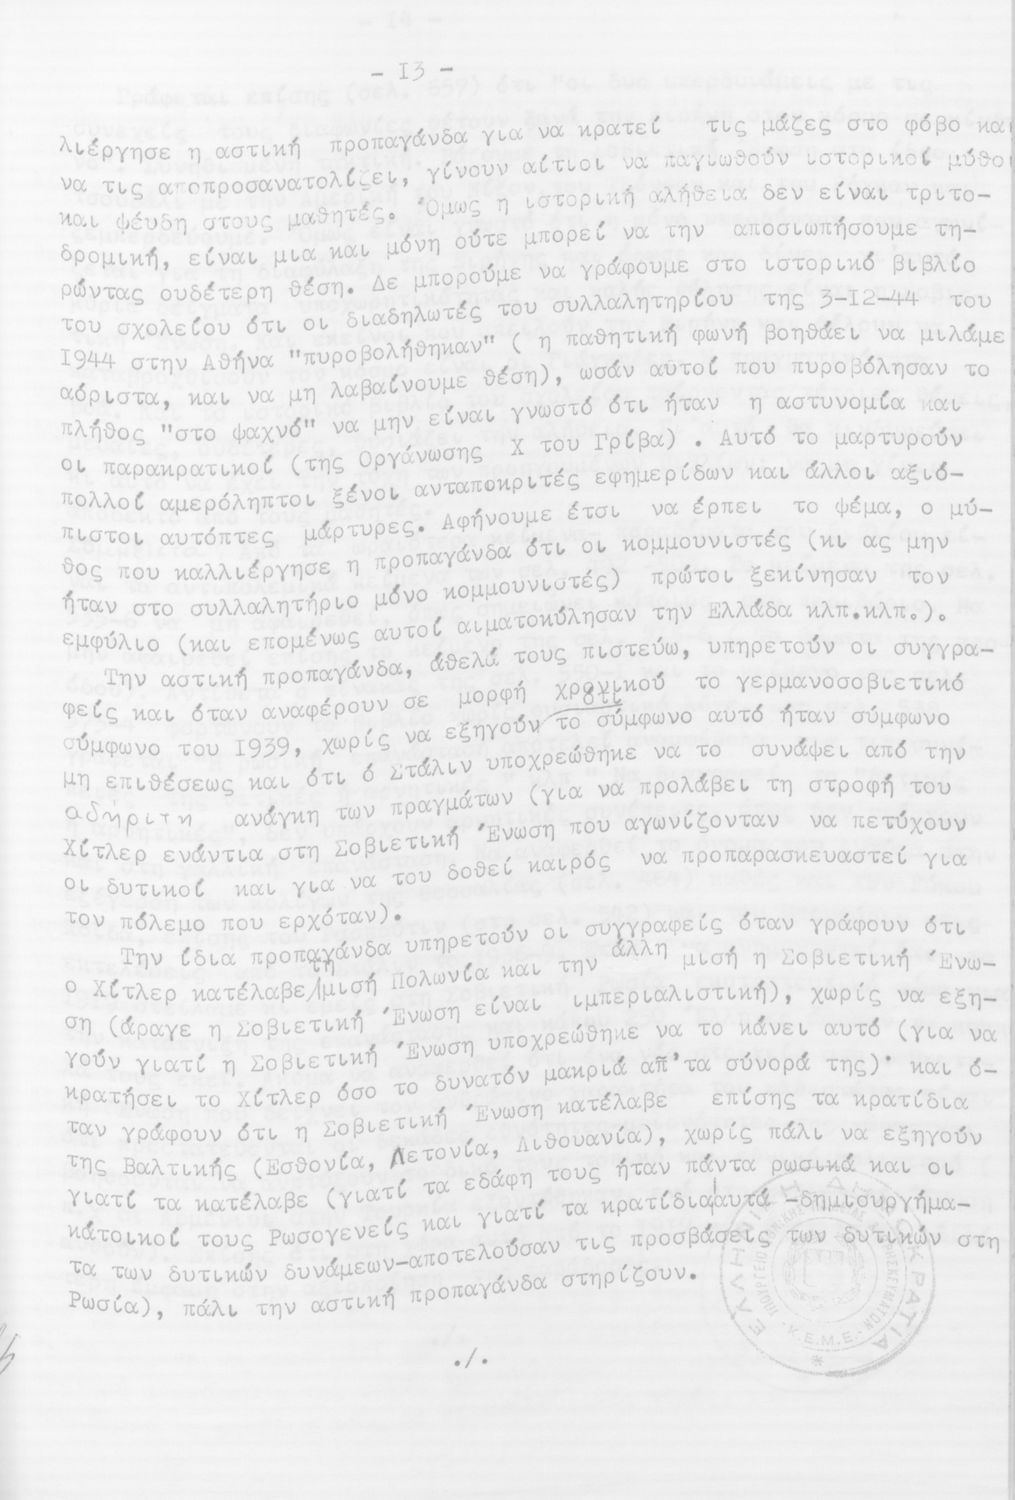 - I3 -
λιέργησε η αστική προπαγάνδα για να κρατεί τις μάζες στο φόβο και
να τις αποπροσανατολίζει, γίνουν αίτιοι να παγιωθούν ιστορικοί μύθοι
και ψέυδη στους μαθητές. Όμως η ιστορική αλήθεια δεν είναι τριτο-
δρομική, είναι μια και μόνη ούτε μπορεί να την αποσιωπήσουμε τη-
ρώντας ουδέτερη θέση. Δε μπορούμε να γράφουμε στο ιστορικό βιβλίο
του σχολείου ότι οι διαδηλωτές του συλλαλητηρίου της 3-I2-44 του
I944 στην Αθήνα "πυροβολήθηκαν" ( η παθητική φωνή βοηθάει να μιλάμε
αόριστα, και να μη λαβαίνουμε θέση), ωσάν αυτοί που πυροβόλησαν το
πλήθος "στο ψαχνό" να μην είναι γνωστό ότι ήταν η αστυνομία και
οι παρακρατικοί (της Οργάνωσης Χ του Γρίβα) . Αυτό το μαρτυρούν
πολλοί αμερόληπτοι ξένοι ανταποκριτές εφημερίδων και άλλοι αξιό-
πιστοι αυτόπτες μάρτυρες. Αφήνουμε έτσι να έρπει το ψέμα, ο μύ-
θος που καλλιέργησε η προπαγάνδα ότι οι κομμουνιστές (κι ας μην
ήταν στο συλλαλητήριο μόνο κομμουνιστές) πρώτοι ξεκίνησαν τον
εμφύλιο (και επομένως αυτοί αιματοκύλησαν την Ελλάδα κλπ.κλπ.).
Την αστική προπαγάνδα, άθελά τους πιστεύω, υπηρετούν οι συγγρα-
φείς και όταν αναφέρουν σε μορφή χρονικού το γερμανοσοβιετικό
σύμφωνο του I939, χωρίς να εξηγούν ότι το σύμφωνο αυτό ήταν σύμφωνο
μη επιθέσεως και ότι ό Στάλιν υποχρεώθηκε να το συνάψει από την
αδήριτη ανάγκη των πραγμάτων (για να προλάβει τη στροφή του
Χίτλερ ενάντια στη Σοβιετική Ένωση που αγωνίζονταν να πετύχουν
οι δυτικοί και για να του δοθεί καιρός να προπαρασκευαστεί για
τον πόλεμο που ερχόταν).
Την ίδια προπαγάνδα υπηρετούν οι συγγραφείς όταν γράφουν ότι
ο Χίτλερ κατέλαβε τη μισή Πολωνία και την άλλη μισή η Σοβιετική Ένω-
ση (άραγε η Σοβιετική Ένωση είναι ιμπεριαλιστική), χωρίς να εξη-
γούν γιατί η Σοβιετική Ένωση υποχρεώθηκε να το κάνει αυτό (για να
κρατήσει το Χίτλερ όσο το δυνατόν μακριά απ'τα σύνορά της)· και ό-
ταν γράφουν ότι η Σοβιετική Ένωση κατέλαβε επίσης τα κρατίδια
της Βαλτικής (Εσθονία, Λετονία, Λιθουανία), χωρίς πάλι να εξηγούν
γιατί τα κατέλαβε (γιατί τα εδάφη τους ήταν πάντα ρωσικά και οι
κάτοικοί τους Ρωσογενείς και γιατί τα κρατίδια αυτά -δημιουργήμα-
τα των δυτικών δυνάμεων-αποτελούσαν τις προσβάσεις των δυτικών στη
Ρωσία), πάλι την αστική προπαγάνδα στηρίζουν.
./.
ΕΛΛΗΝΙΚΗ ΔΗΜΟΚΡΑΤΙΑ
Κ.Ε.Μ.Ε.